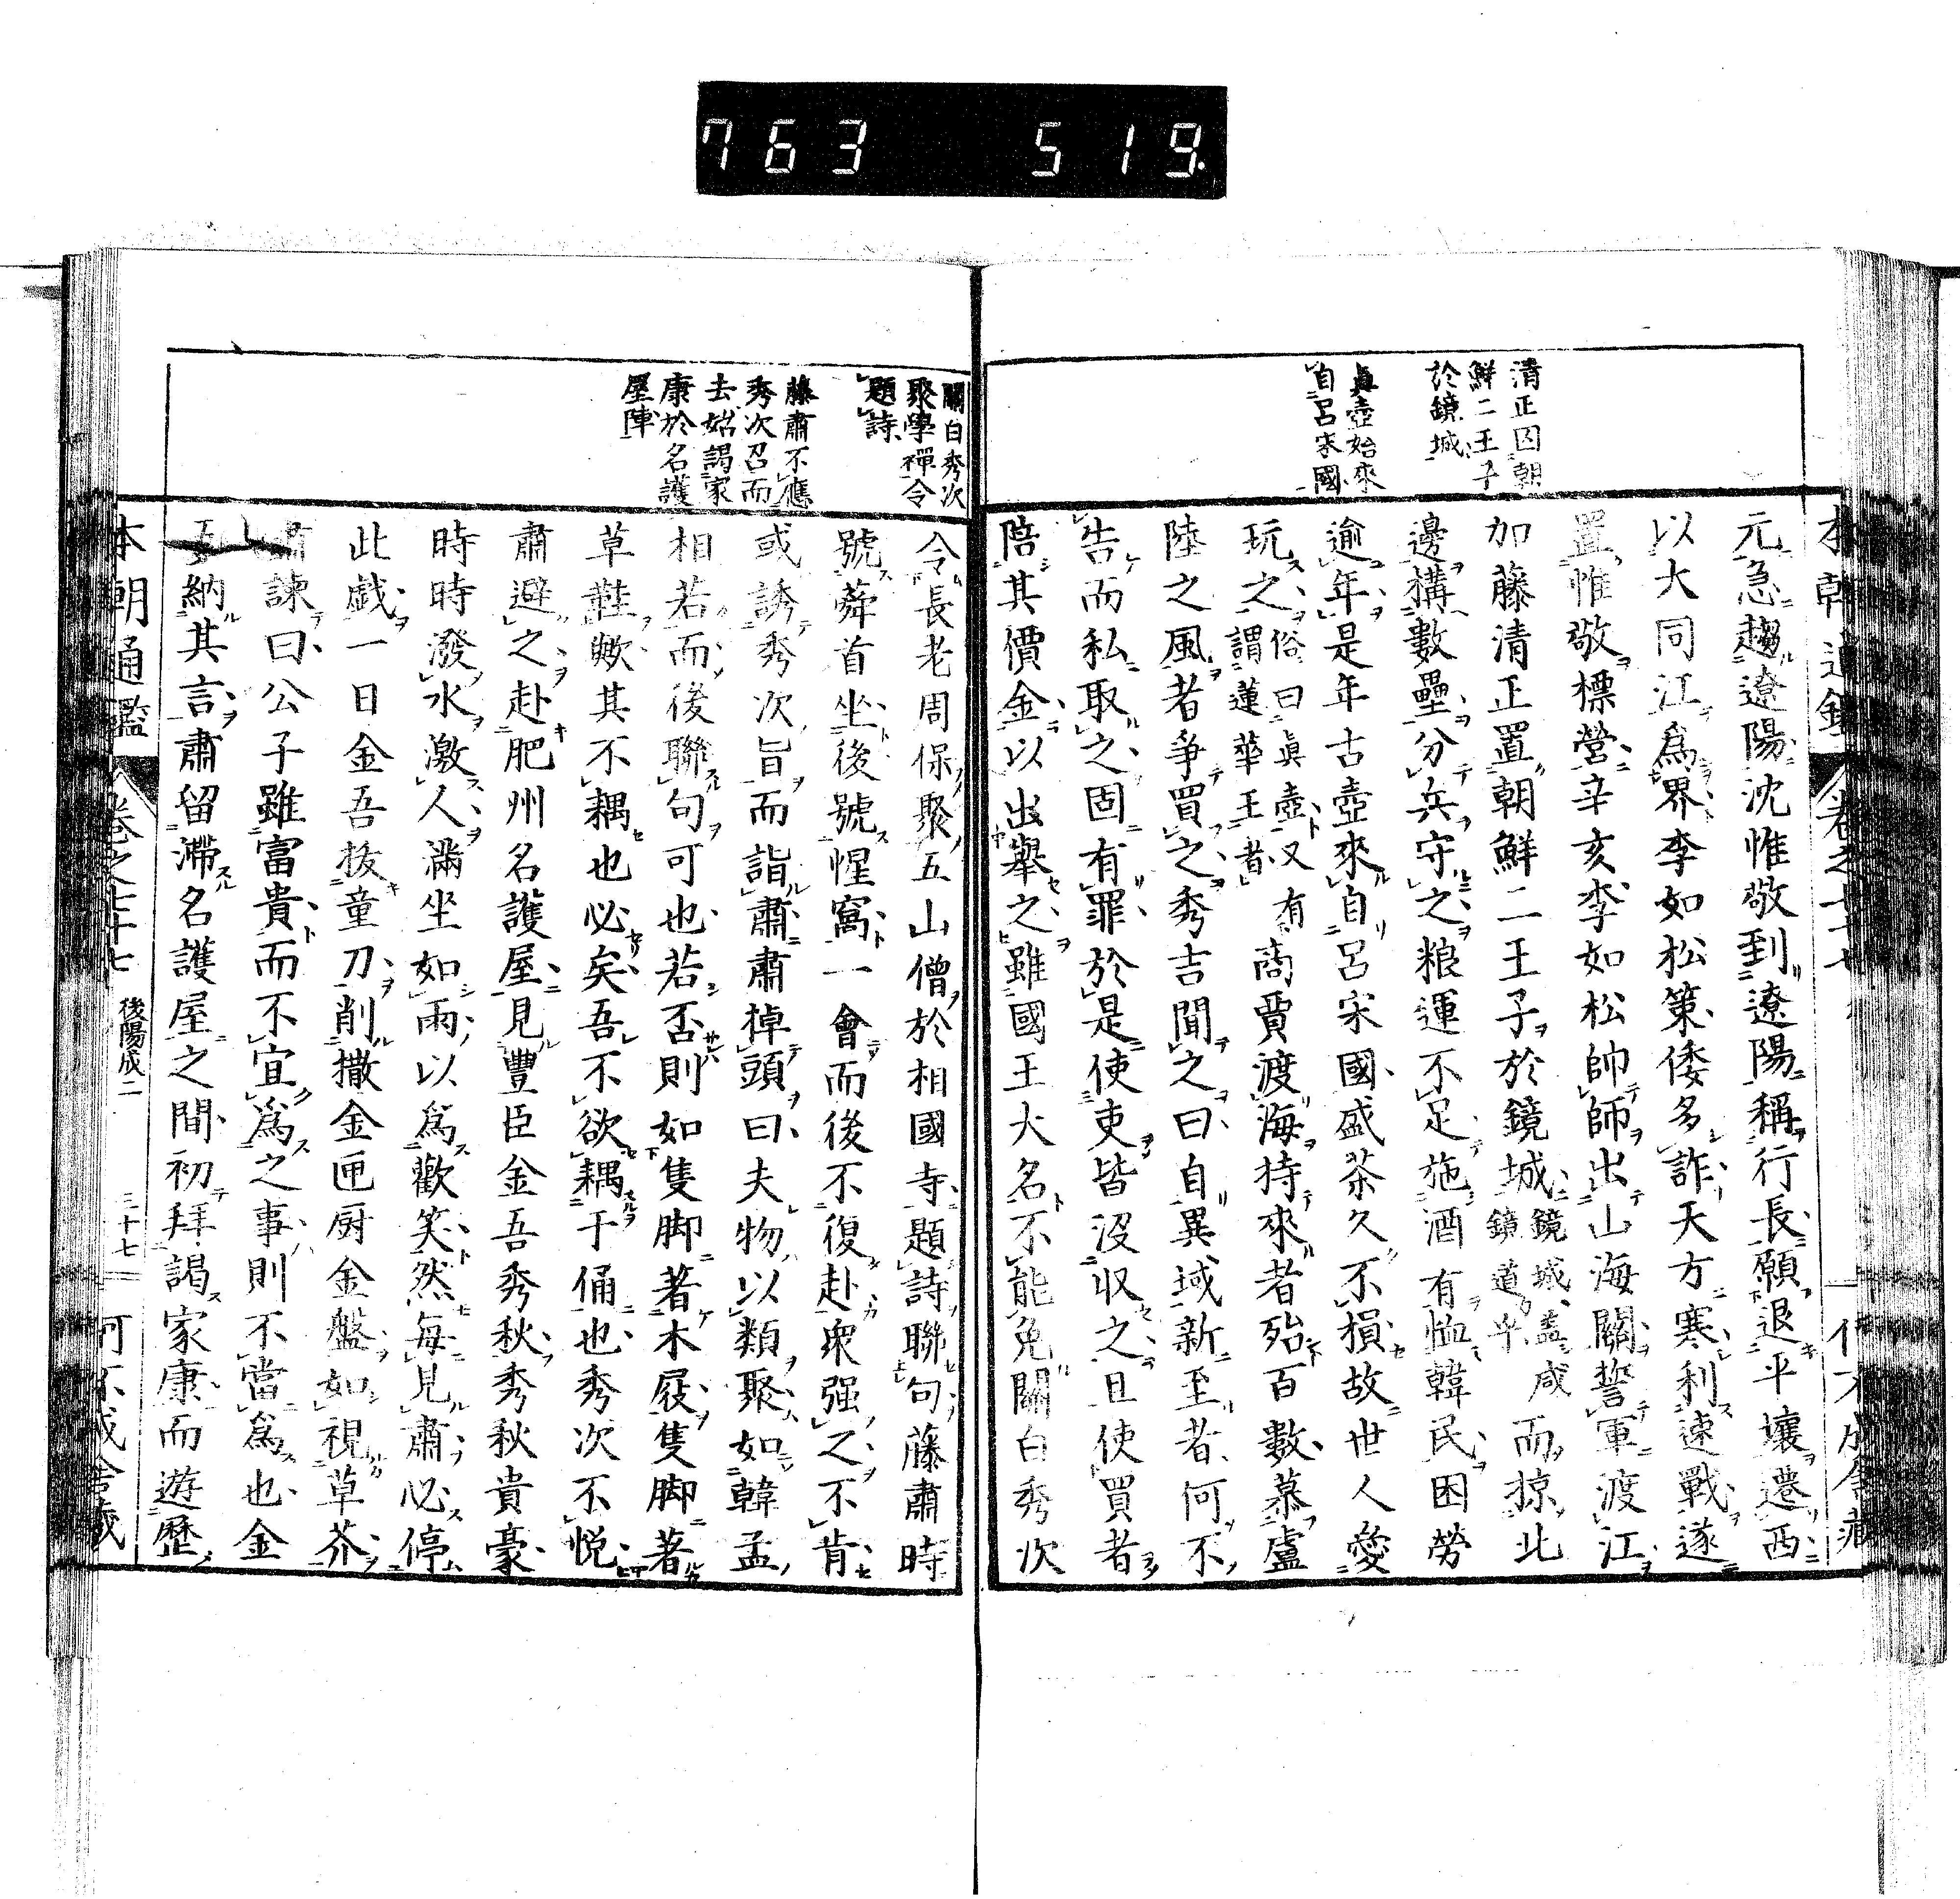 763 519.
清正囚朝
鮮二王子
於鏡城
眞壺始來
自呂宋國
元急趨遼陽沈惟敬到遼陽稱行長願退平壤遷西
以大同江爲界李如松策倭多詐天方寒利速戰遂
置惟敬標營辛亥李如松帥師出山海關誓軍渡江
加藤清正置朝鮮二王子於鏡城鏡城盖咸鏡道乎而掠北
邊構數壘分兵守之粮運不足施酒有恤韓民困勞
逾年是年古壺來自呂宋國盛茶久不損故世人愛
玩之俗曰眞壺又有謂蓮華王者商賈渡海持來者殆百數慕盧
陸之風者爭買之秀吉聞之曰自異域新至者何不
告而私取之固有罪於是使吏皆沒収之且使買者
陪其價金以出擧之雖國王大名不能免關白秀次
關白秀次
聚學禪令
題詩
藤肅不應
秀次召而
去始謁家
康於名護
屋陣
令長老周保聚五山僧於相國寺題詩聯句藤肅時
號蕣首坐後號惺窩一會而後不復赴衆强之不肯
或誘秀次旨而詣肅肅掉頭曰夫物以類聚如韓孟
相若而後聯句可也若否則如隻脚著木屐隻脚著
草鞋歟其不耦也必矣吾不欲耦于俑也秀次不悅
肅避之赴肥州名護屋見豐臣金吾秀秋秀秋貴豪
時時潑水激人滿坐如雨以爲歡笑然每見肅必停
此戯一日金吾拔童刀削撒金匣厨金盤如視草芥
諫曰公子雖富貴而不宜爲之事則不當爲也金
納其言肅留滯名護屋之間初拜謁家康而遊歷
本朝通鑑
卷之七十七
後陽成二
三十七